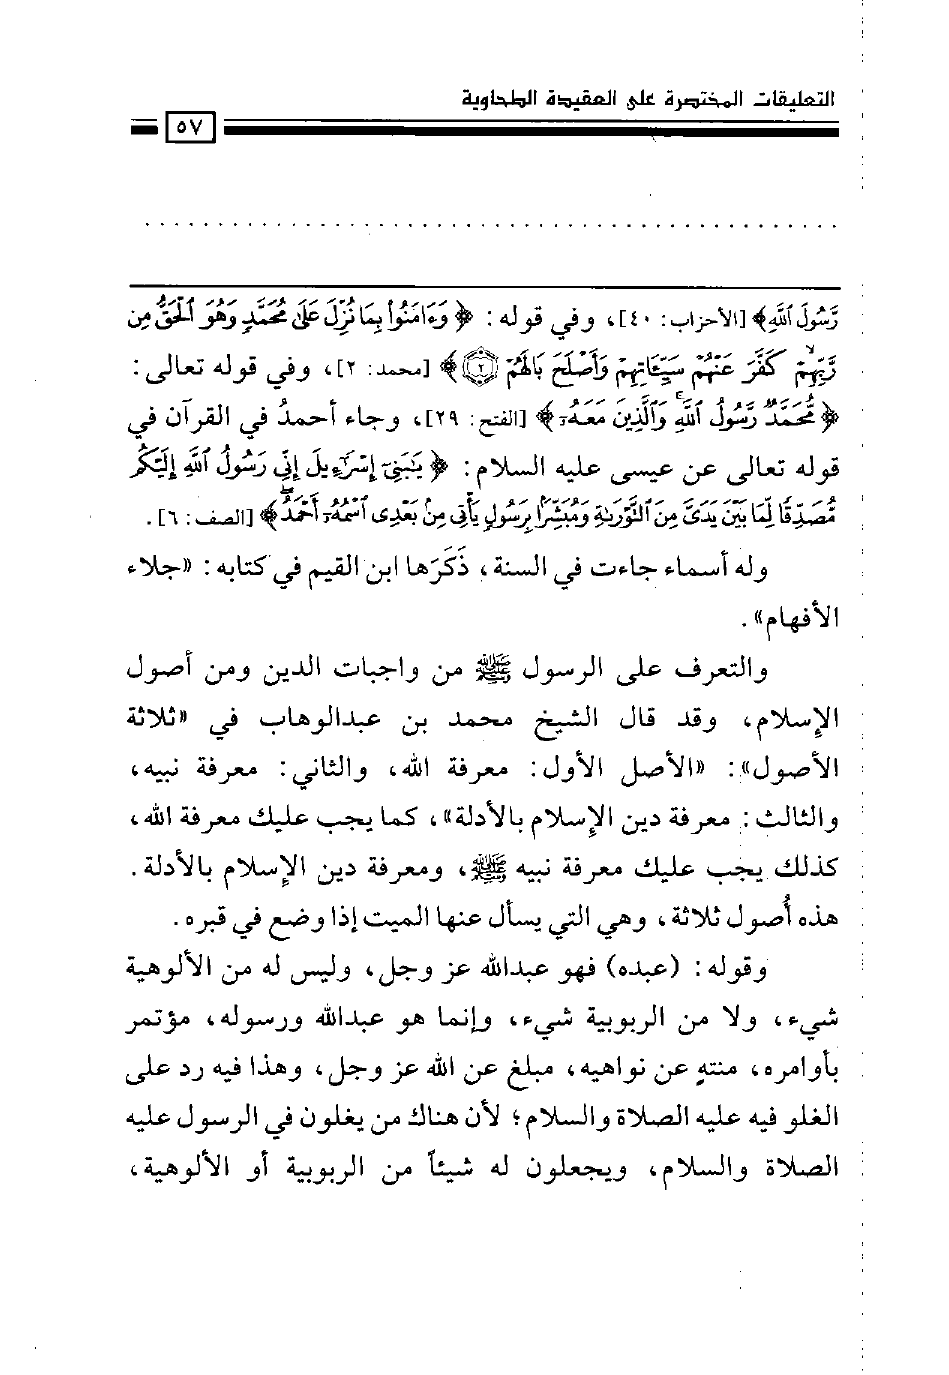 التعليقات المختصرة على العقيدة الطحاوية
٥٧
رَّسُولَ ٱللَّهِ﴾ [الأحزاب: ٤٠]، وفي قوله: ﴿وَءَامَنُوا۟ بِمَا نُزِّلَ عَلَىٰ مُحَمَّدٍ وَهُوَ ٱلْحَقُّ مِن
رَّبِّهِمْ ۙ كَفَّرَ عَنْهُمْ سَيِّـَٔاتِهِمْ وَأَصْلَحَ بَالَهُمْ ۝٢﴾ [محمد: ٢]، وفي قوله تعالى:
﴿مُّحَمَّدٌ رَّسُولُ ٱللَّهِ ۚ وَٱلَّذِينَ مَعَهُۥٓ﴾ [الفتح: ٢٩]، وجاء أحمدُ في القرآن في
قوله تعالى عن عيسى عليه السلام: ﴿يَـٰبَنِىٓ إِسْرَٰٓءِيلَ إِنِّى رَسُولُ ٱللَّهِ إِلَيْكُم
مُّصَدِّقًا لِّمَا بَيْنَ يَدَىَّ مِنَ ٱلتَّوْرَىٰةِ وَمُبَشِّرًۢا بِرَسُولٍ يَأْتِى مِنۢ بَعْدِى ٱسْمُهُۥٓ أَحْمَدُ ۖ﴾ [الصف: ٦].
وله أسماء جاءت في السنة، ذَكَرَها ابن القيم في كتابه: «جلاء
الأفهام».
والتعرف على الرسول ﷺ من واجبات الدين ومن أصول
الإسلام، وقد قال الشيخ محمد بن عبدالوهاب في «ثلاثة
الأصول»: «الأصل الأول: معرفة الله، والثاني: معرفة نبيه،
والثالث: معرفة دين الإسلام بالأدلة»، كما يجب عليك معرفة الله،
كذلك يجب عليك معرفة نبيه ﷺ، ومعرفة دين الإسلام بالأدلة.
هذه أُصول ثلاثة، وهي التي يسأل عنها الميت إذا وضع في قبره.
وقوله: (عبده) فهو عبدالله عز وجل، وليس له من الألوهية
شيء، ولا من الربوبية شيء، وإنما هو عبدالله ورسوله، مؤتمر
بأوامره، منتهٍ عن نواهيه، مبلغ عن الله عز وجل، وهذا فيه رد على
الغلو فيه عليه الصلاة والسلام؛ لأن هناك من يغلون في الرسول عليه
الصلاة والسلام، ويجعلون له شيئاً من الربوبية أو الألوهية،